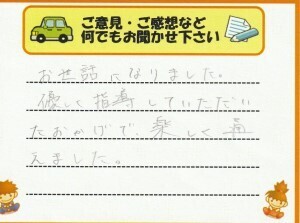 ご意見・ご感想など
何でもお聞かせ下さい
お世話になりました。
優しく指導していただい
たおかげで、楽しく
えました。